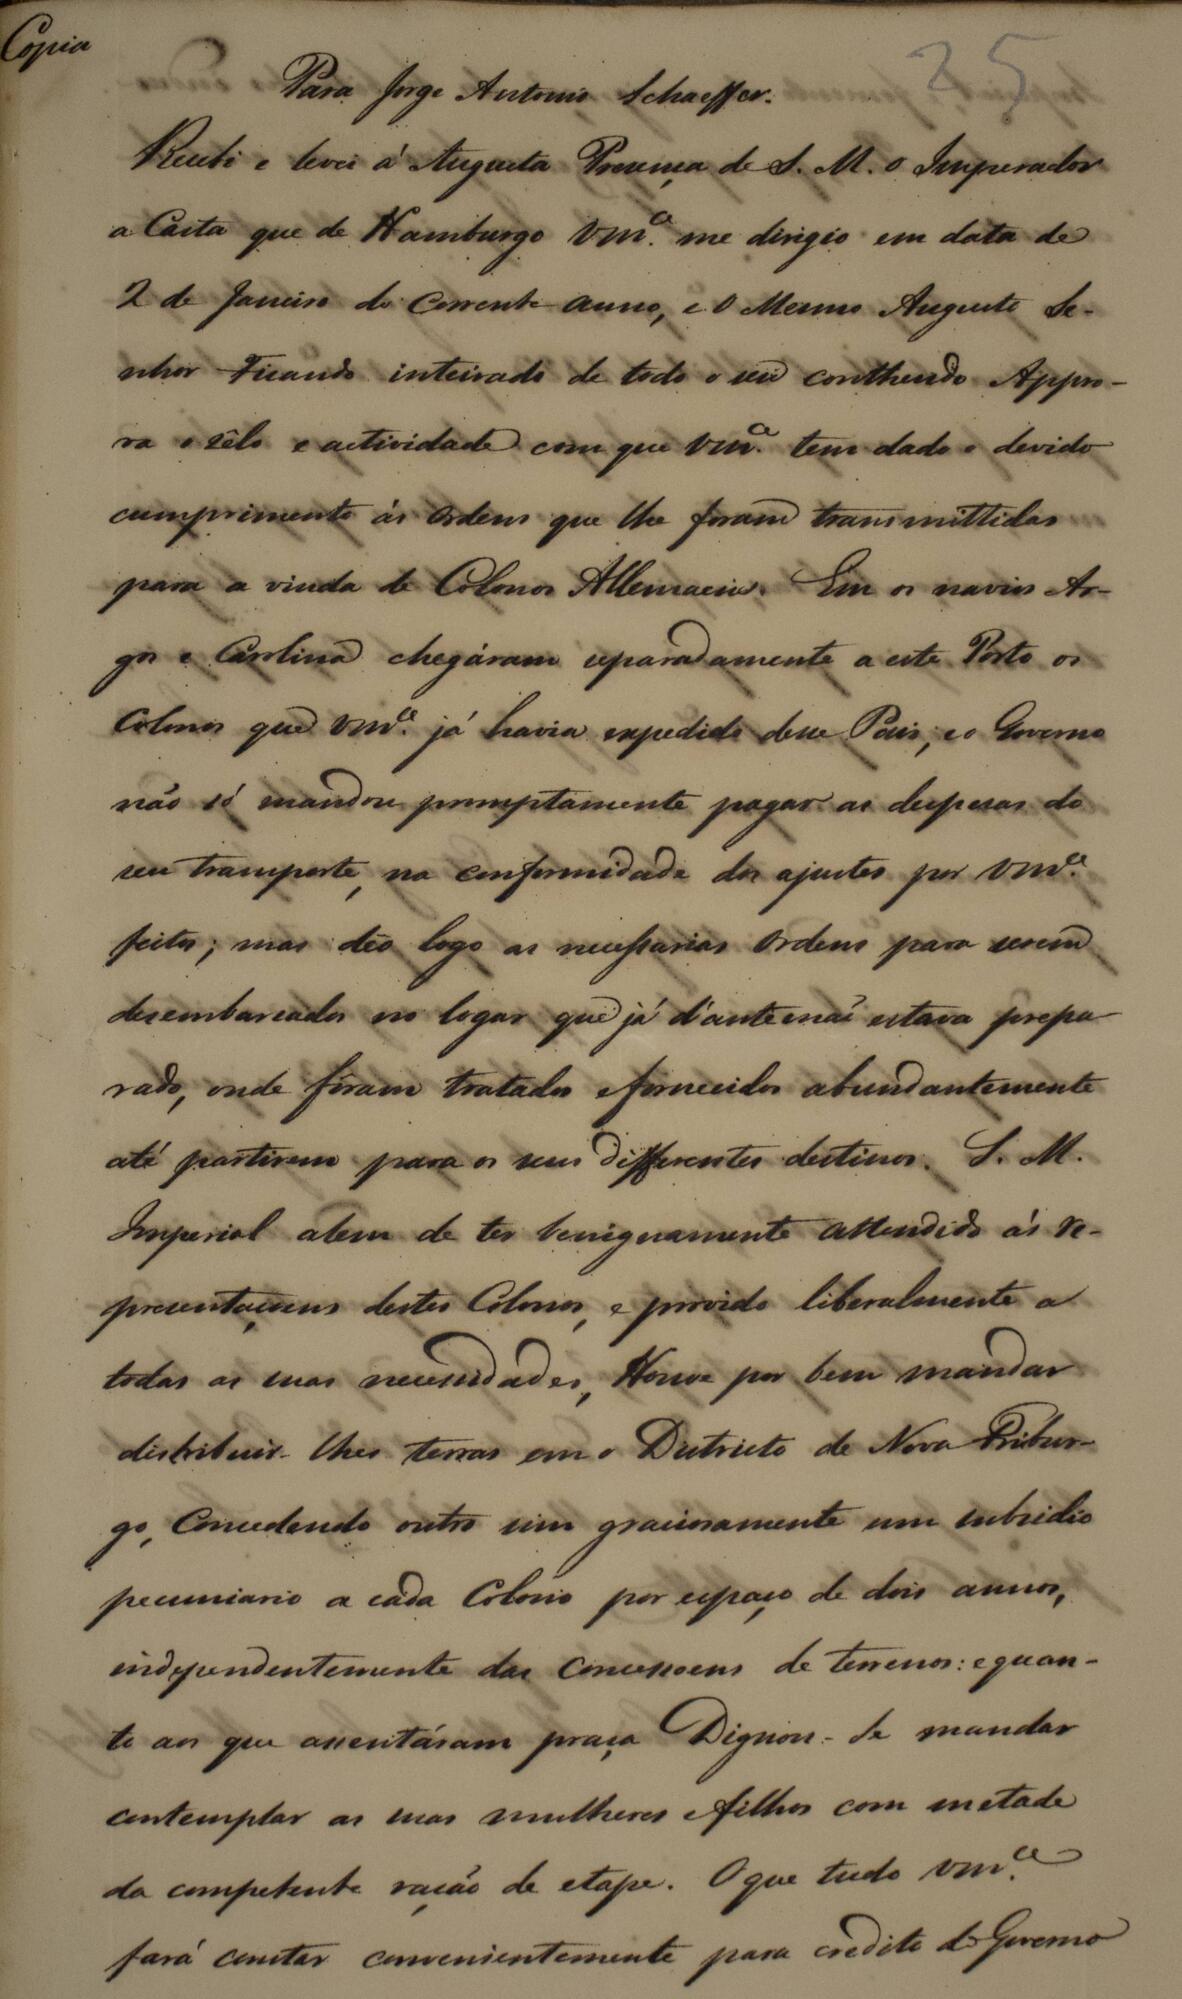 Copia
25
Para Jorge Antonio Schaeffer.
Recebi e levei á Augusta Presença de S. M. o Imperador
a Carta que de Hamburgo Vm.ce me dirigio em data de
2 de Janeiro do corrente anno, e O Mesmo Augusto Se-
nhor Ficando inteirado de todo o seu conthendo Appro-
va o zêlo e actividade com que Vm.ce tem dado o devido
cumprimento ás Ordens que lhe foram transmittidas
para a vinda de Colonos Allemaens. Em os navios Ar-
gos e Carolina chegáram separadamente a este Porto os
Colonos que Vm.ce já havia expedido desse Pais, e o Governo
não só mandou promptamente pagar as despesas do
seu transporte, na conformidade dos ajustes por Vm.ce
feitos; mas dêo logo as necessarias Ordens para serem
desembarcados no logar que já d'antemaõ estava prepa-
rado, onde fôram tratados e fornecidos abundantemente
até partirem para os seus differentes destinos. S. M.
Imperial alem de ter benignamente attendido ás re-
presentaçoens destes Colonos, e provido liberalmente a
todas as suas necessidades, Houve por bem mandar
distribuir-lhes terras em o Districto de Nova Fribur-
go, Concedendo outro sim graciosamente um subsidio
pecuniario a cada Colono por espaço de dois annos,
independentemente das Concessoens de terrenos: e quan-
to aos que assentáram praça Dignou-se mandar
contemplar as suas mulheres e filhos com metade
da competente ração de etape. O que tudo Vm.ce
fará constar convenientemente para credito do Governo